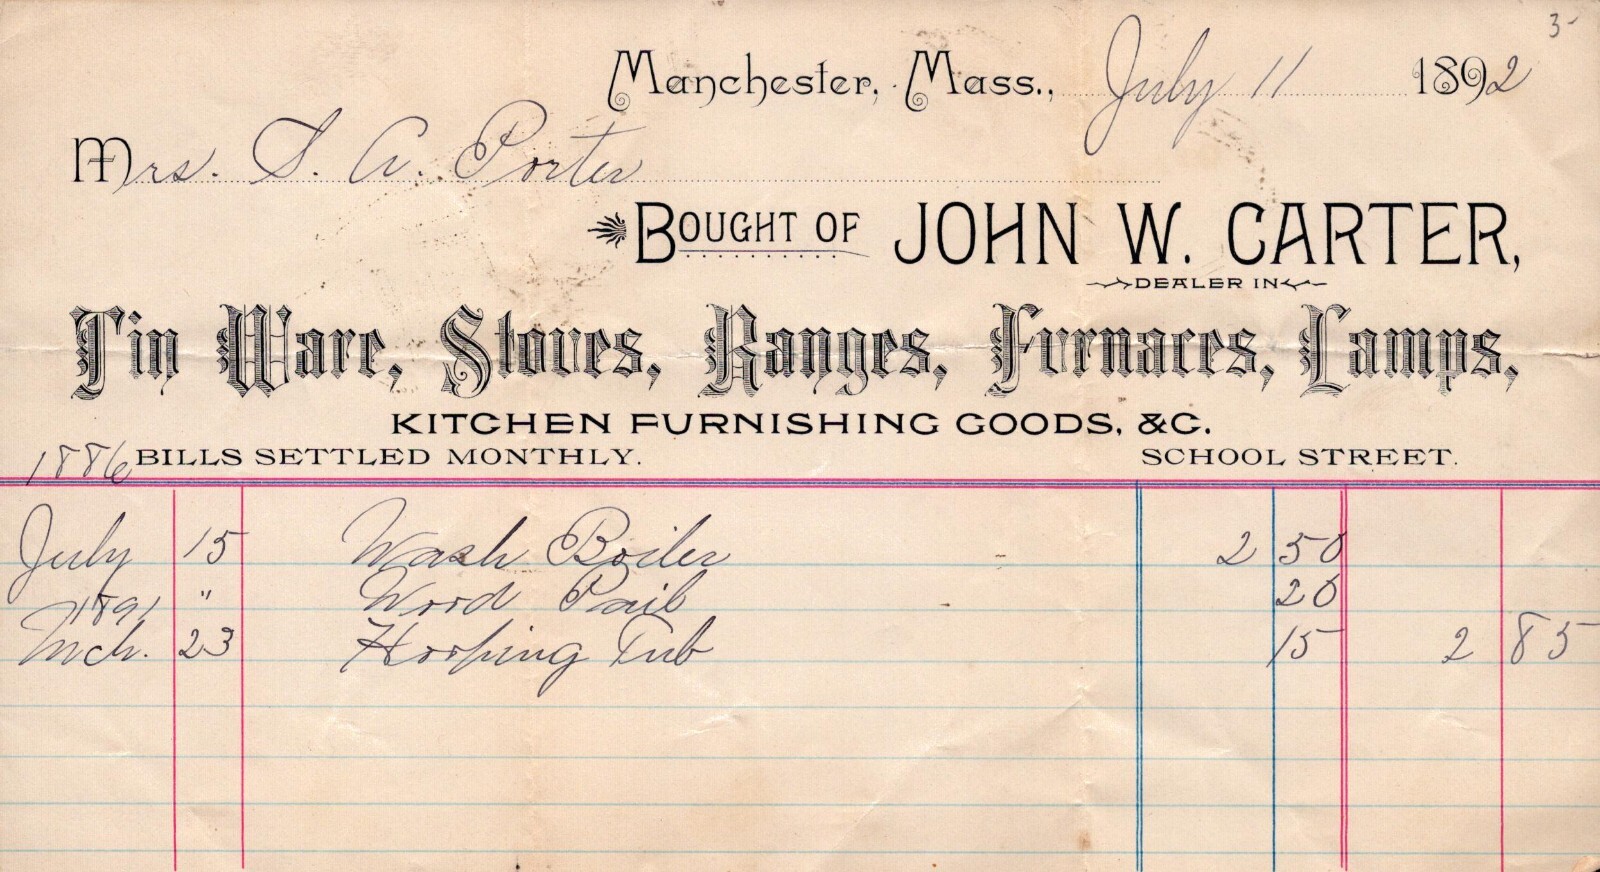 3-
Manchester, Mass., July 11 1892
Mrs. S. A. Porter
BOUGHT OF JOHN W. CARTER,
DEALER IN
Tin Ware, Stoves, Ranges, Furnaces, Lamps,
KITCHEN FURNISHING GOODS, &C.
1886 BILLS SETTLED MONTHLY. SCHOOL STREET.
July 15 Wash Boiler 2 50
" Wood Pail 20
1891
Mch. 23 Hooping Tub 15 2 85